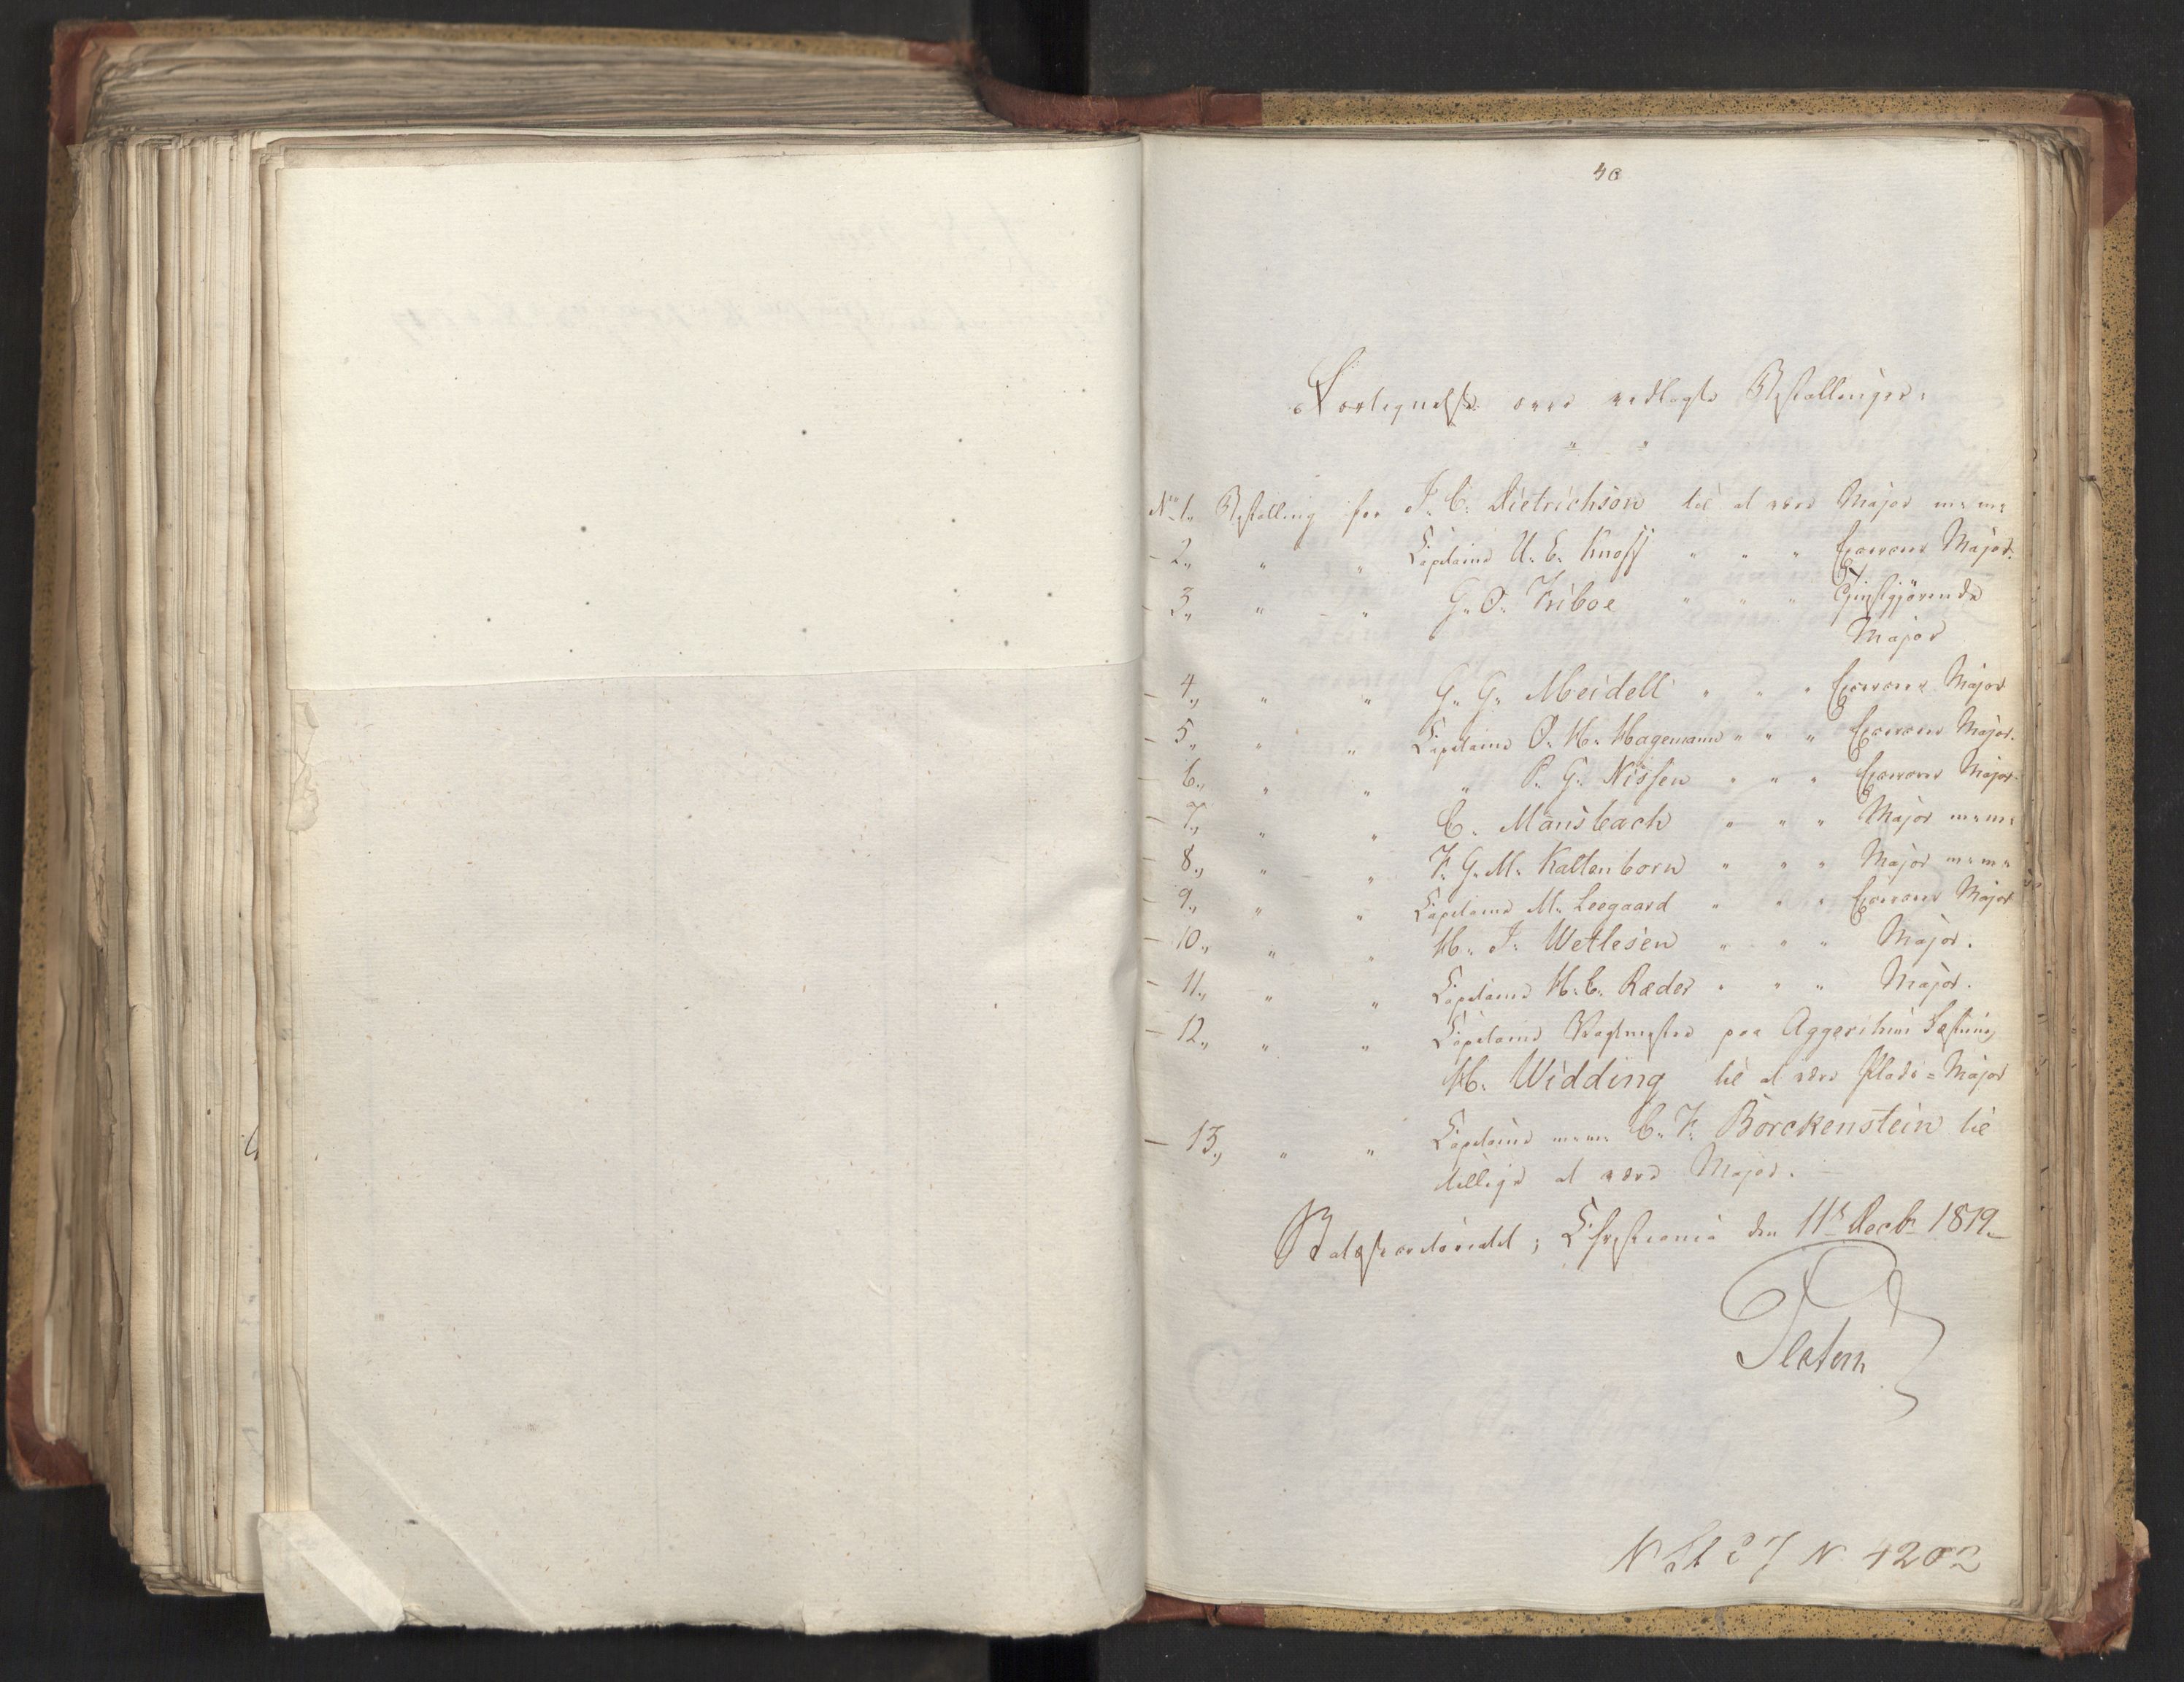 40
Fortegnelse over vedlagte Bestallinger.
" "
No 1., Bestalling for J. C. Dietrichson til at være Major m: m:
- 2., " " Capitaine U. E. Knoff " " " Caract: Major.
- 3., " " G. O. Friboe " " " Tjenstgjörende
Major
- 4., " " G. G. Meidell " " " Caract: Major
- 5., " " Capitaine O. H. Hagemann " " " Caract: Major.
- 6., " " " P. G. Nissen " " " Caract: Major
- 7., " " C. Mansbach " " " Major m: m:
- 8., " " F. G. M. Kaltenborn " " " Major m: m:
- 9., " " Capitaine M. Leegaard " " " Caract: Major
- 10., " " H. J. Wetlesen " " " Major.
- 11., " " Capitaine H. C. Ræder " " " Major.
- 12., " " Capitaine Vagtmester paa Aggershuus Fæstning
H. Widding til at være Plads-Major
- 13., " " Capitaine m: m: C. F. Borckenstein til
tillige at være Major.
Christiania den 11te Decbr 1819.
Platen
N 4202